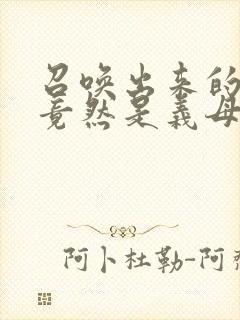 召唤出来的
竟然是义母
阿卜杜勒-阿